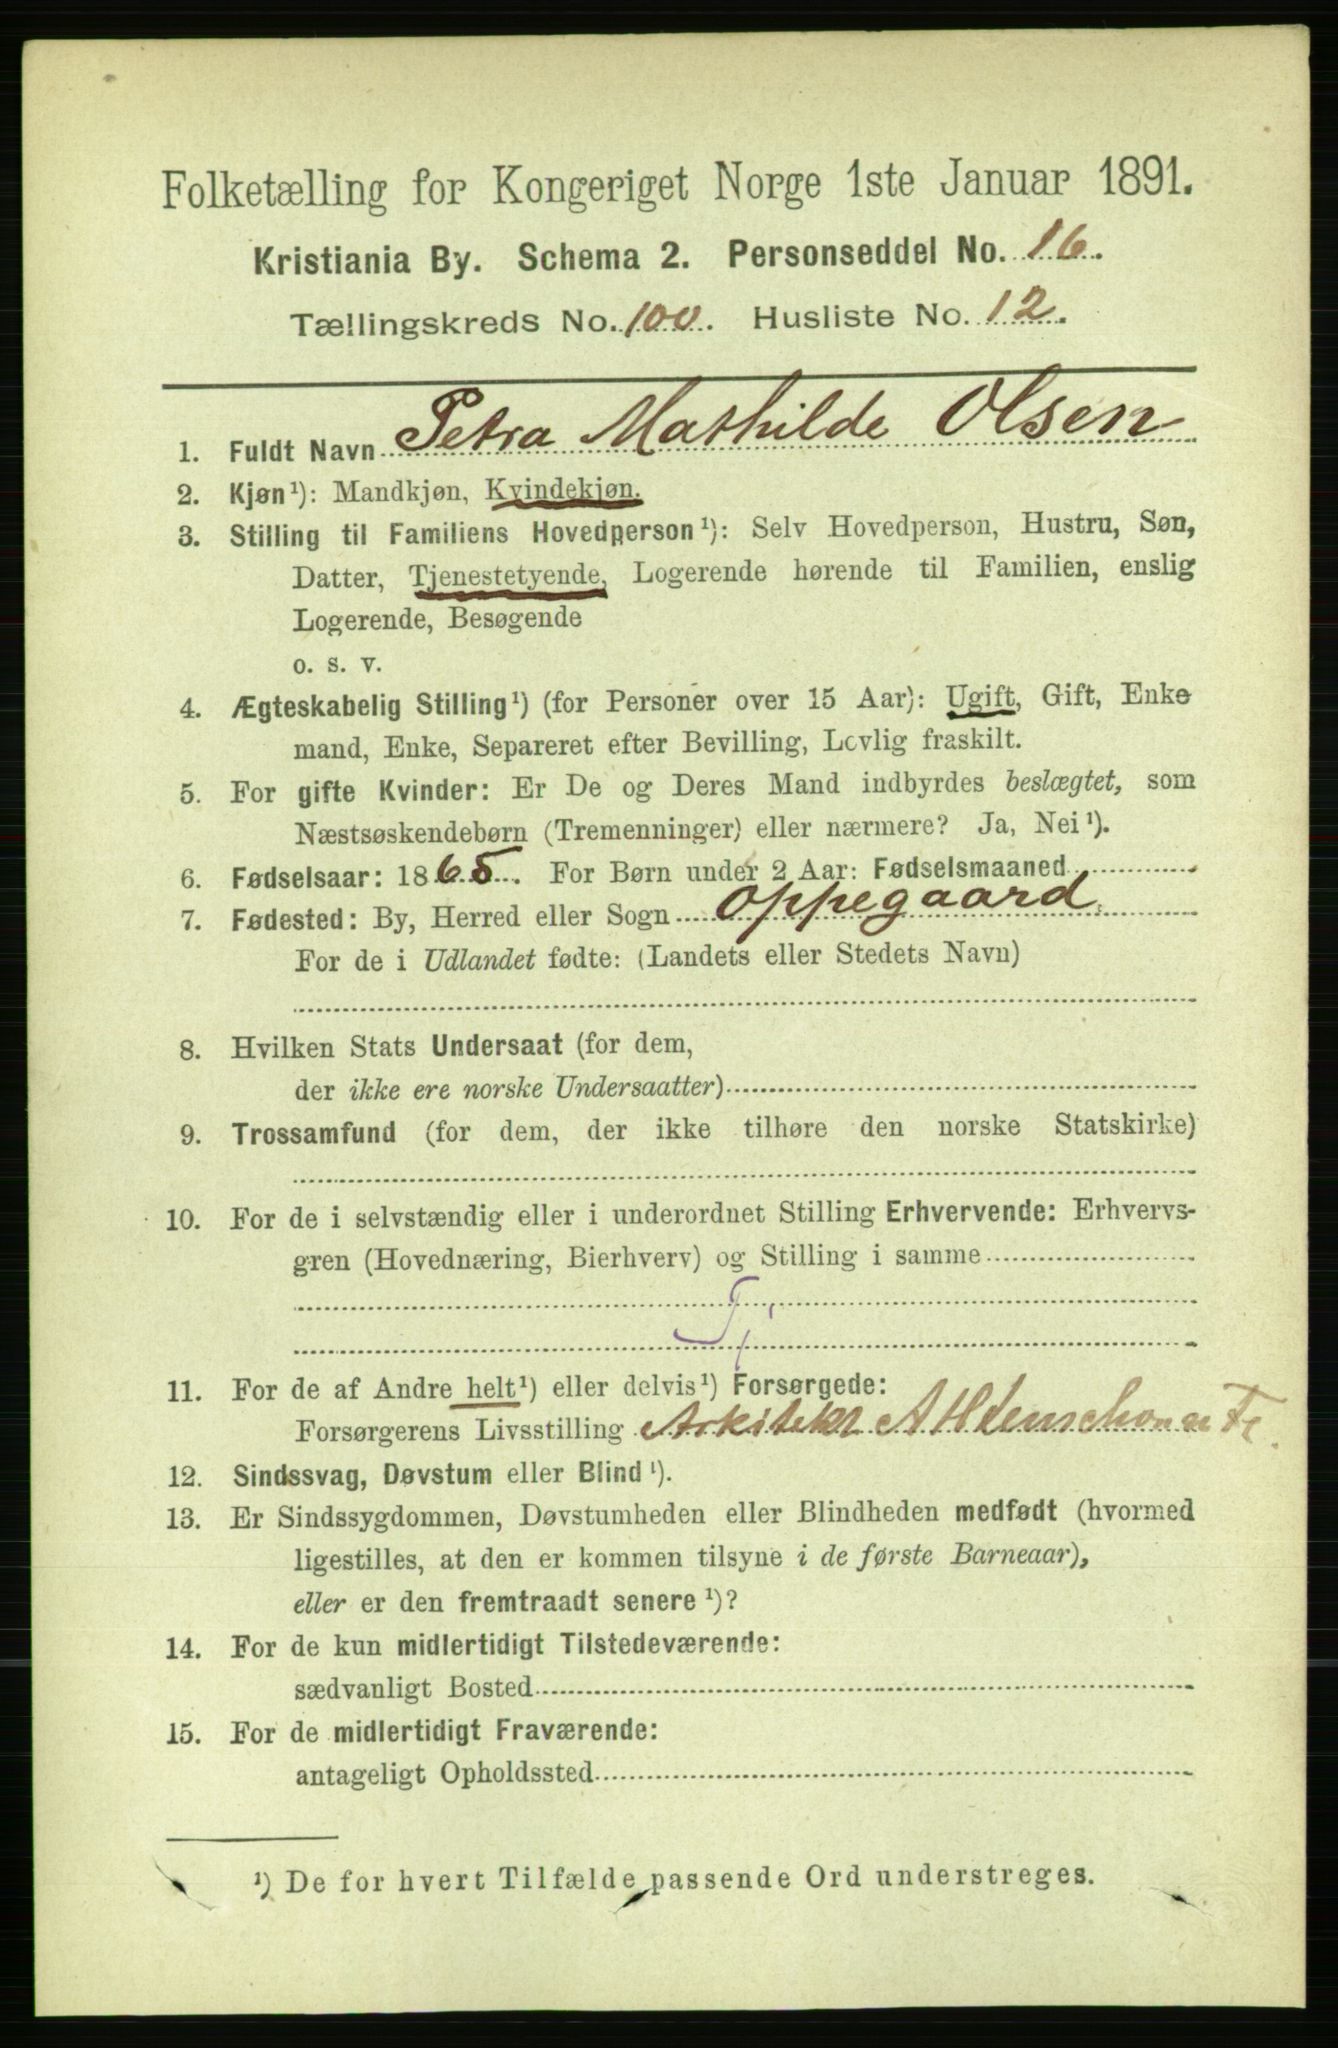 Folketælling for Kongeriget Norge 1ste Januar 1891.
Kristiania By. Schema 2. Personseddel No. 16.
Tællingskreds No. 100. Husliste No. 12.
1. Fuldt Navn Petra Mathilde Olsen
2. Kjøn¹): Mandkjøn, Kvindekjøn.
3. Stilling til Familiens Hovedperson¹): Selv Hovedperson, Hustru, Søn,
Datter, Tjenestetyende, Logerende hørende til Familien, enslig
Logerende, Besøgende
o. s. v.
4. Ægteskabelig Stilling¹) (for Personer over 15 Aar): Ugift, Gift, Enke
mand, Enke, Separeret efter Bevilling, Lovlig fraskilt.
5. For gifte Kvinder: Er De og Deres Mand indbyrdes beslægtet, som
Næstsøskendebørn (Tremenninger) eller nærmere? Ja, Nei¹).
6. Fødselsaar: 1865. For Børn under 2 Aar: Fødselsmaaned
7. Fødested: By, Herred eller Sogn Oppegaard
For de i Udlandet fødte: (Landets eller Stedets Navn)
8. Hvilken Stats Undersaat (for dem,
der ikke ere norske Undersaatter)
9. Trossamfund (for dem, der ikke tilhøre den norske Statskirke)
10. For de i selvstændig eller i underordnet Stilling Erhvervende: Erhvervs-
gren (Hovednæring, Bierhverv) og Stilling i samme
Tj
11. For de af Andre helt¹) eller delvis¹) Forsørgede:
Forsørgerens Livsstilling Arkitekt
12. Sindssvag, Døvstum eller Blind¹).
13. Er Sindssygdommen, Døvstumheden eller Blindheden medfødt (hvormed
ligestilles, at den er kommen tilsyne i de første Barneaar),
eller er den fremtraadt senere¹)?
14. For de kun midlertidigt Tilstedeværende:
sædvanligt Bosted
15. For de midlertidigt Fraværende:
antageligt Opholdssted
¹) De for hvert Tilfælde passende Ord understreges.